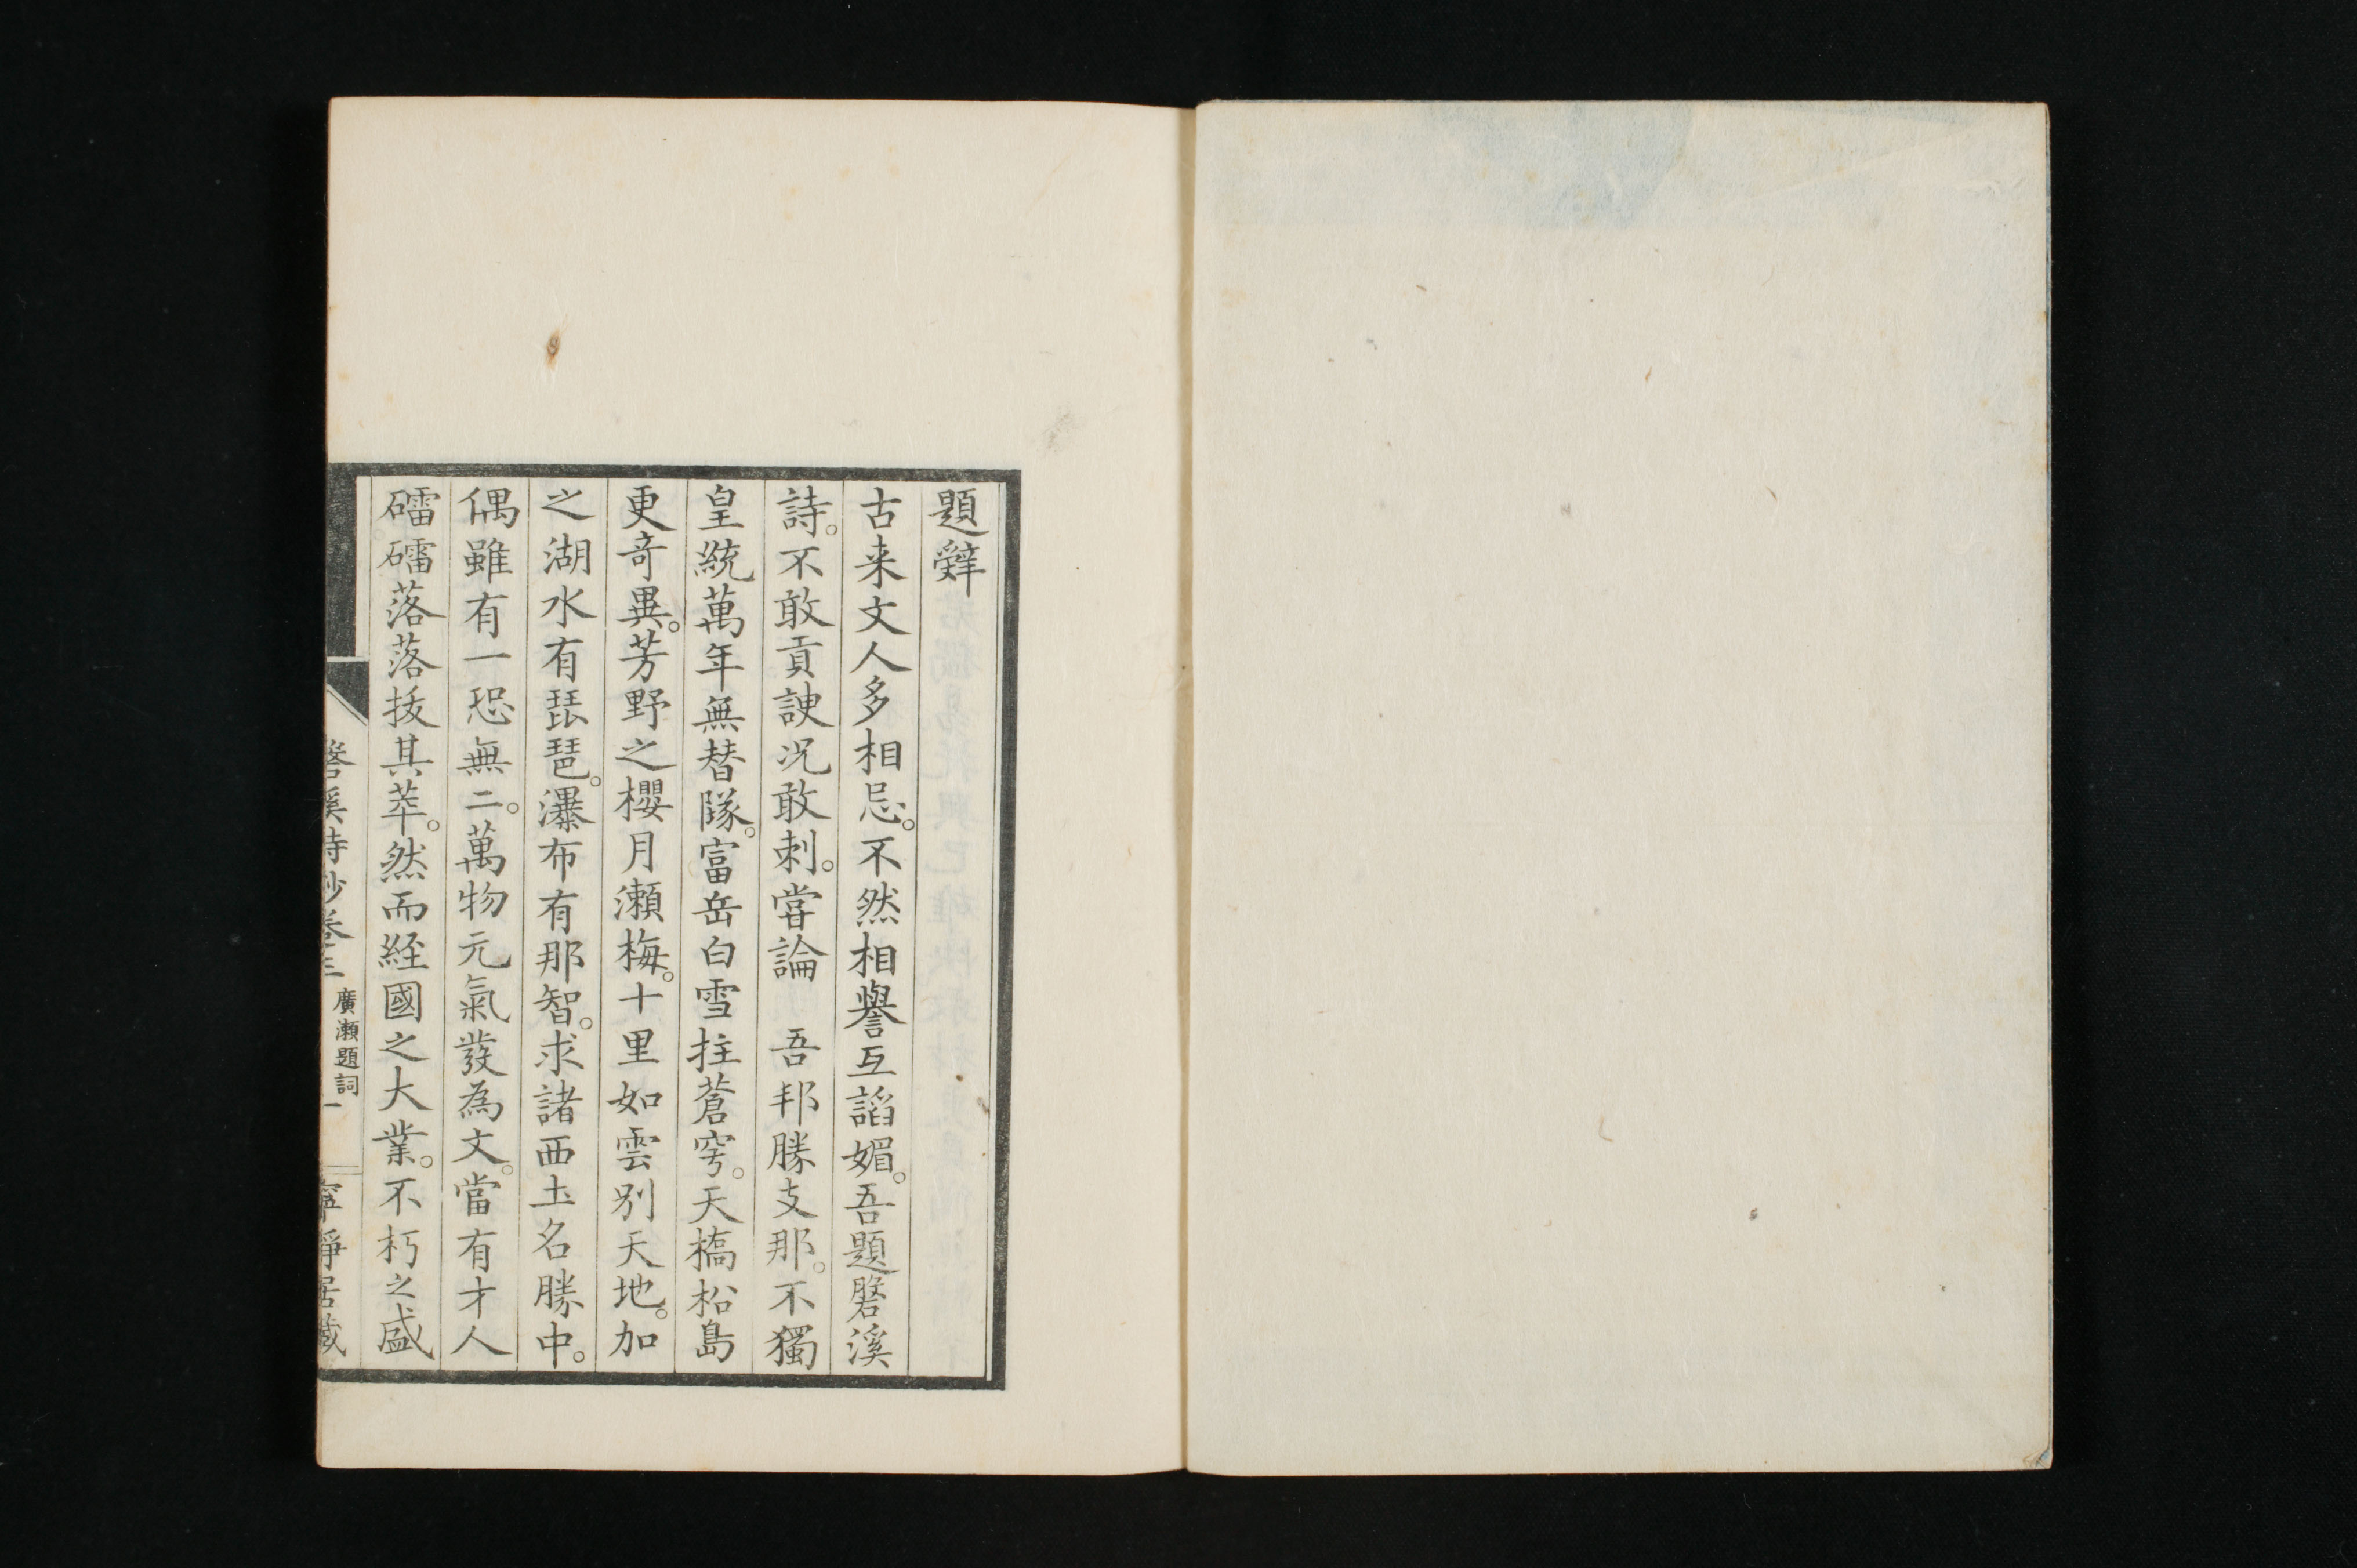 題辤
古来文人多相忌。不然相譽互諂媚。吾題磐溪
詩。不敢貢諛况敢刺。甞論　吾邦勝支那。不獨
皇統萬年無替隊。富岳白雪拄蒼穹。天橋松島
更竒異。芳野之櫻月瀬梅。十里如雲別天地。加
之湖水有琵琶。瀑布有那智。求諸西土名勝中。
偶雖有一恐無二。萬物元氣發為文。當有才人
礌礌落落拔其萃。然而経國之大業。不朽之盛
磐溪詩鈔卷三　廣瀬題詞　一　寧靜居藏